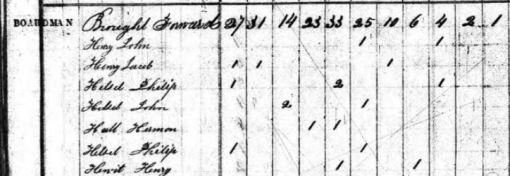 BOARDMAN Brought Forward 27 31 14 23 33 25 10 6 4 2 1
Hixey John 1 1
Henry Jacob 1 1 1
Hetsel Philip 1 2 1
Hetsel John 2 1
Hall Harmon 1 1
Hetsel Philip 1 1
Hewit Henry 1 1